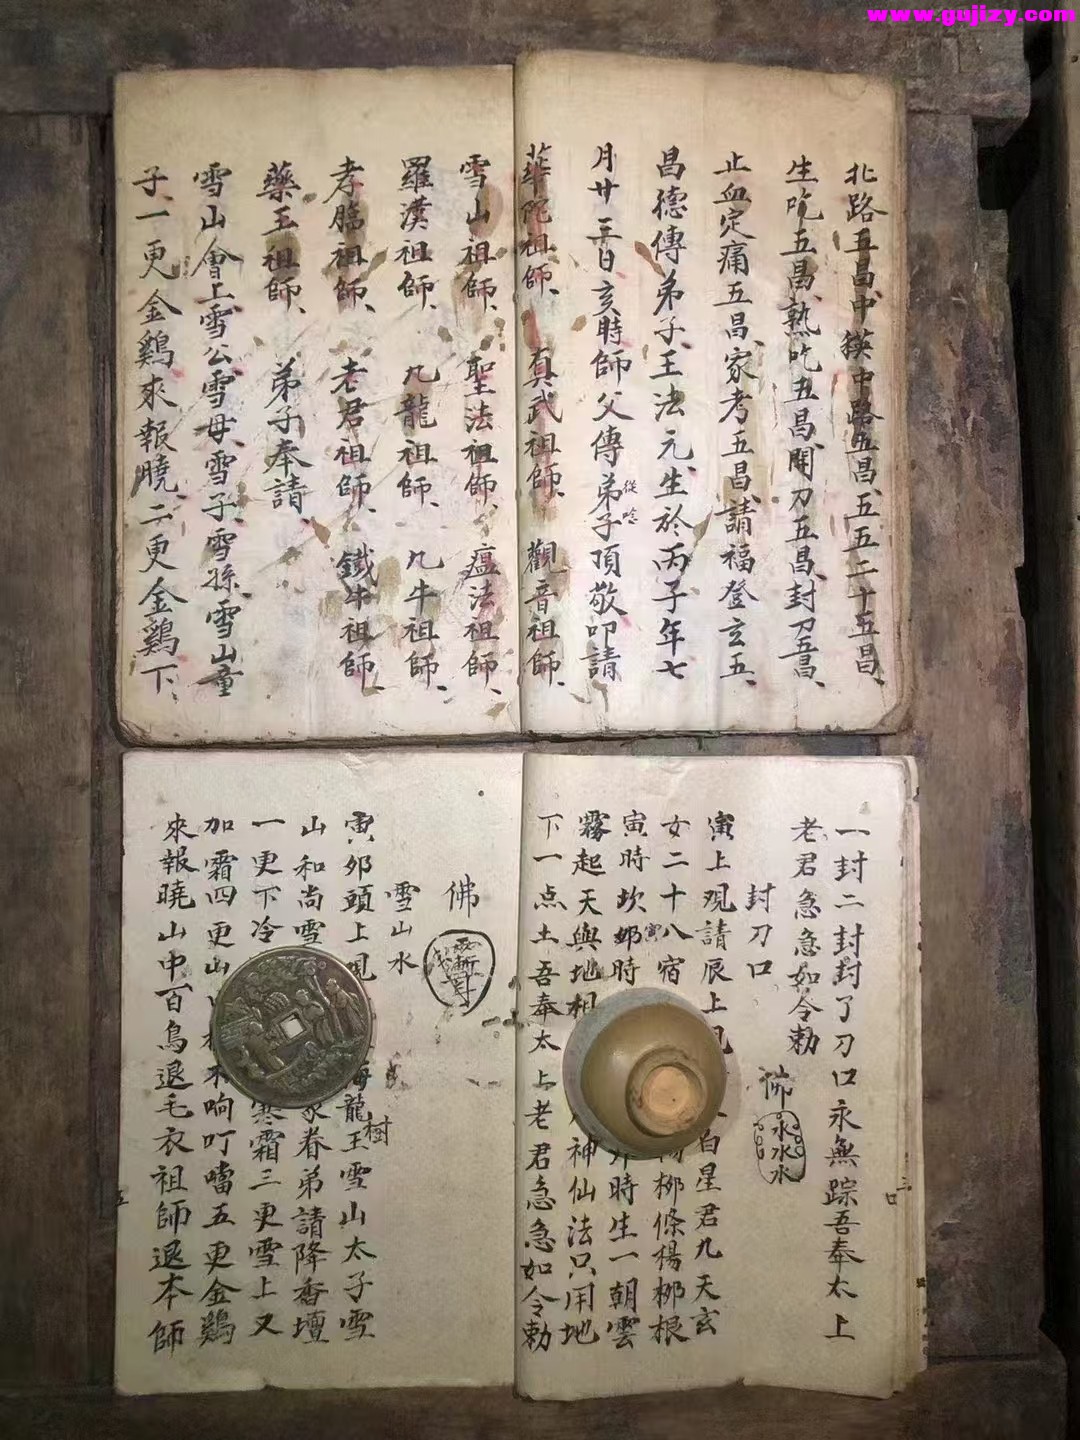 www.gujizy.com
北路五昌、中猺中路五昌、五五二十五昌、
生吃五昌、熟吃五昌、開刀五昌、封刀五昌、
止血定痛五昌、家考五昌、請福登玄五、
昌德傳弟子王法元、生於丙子年七
月廿三日亥時師父傳弟子頂敬叩請
華陀祖師、真武祖師、觀音祖師、
雪山祖師、聖法祖師、瘟法祖師、
羅漢祖師、九龍祖師、九牛祖師、
孝臨祖師、老君祖師、鐵牛祖師、
藥王祖師、弟子奉請、
雪山會上雪公雪母、雪子雪孫、雪山童
子一更金鷄來報曉、二更金鷄下、
一封二封封了刀口永無踪吾奉太上
老君急急如令勅
佛
水水水
封刀口
寅上观請辰上
白星君九天玄
女二十八宿
楊桞條楊桞根
寅時坎
時
時生一朝雲
霧起天與地相
神仙法只用地
下一点土吾奉太上老君急急如令勅
佛
雪山水
寅夘頭上
海龍王雪山太子雪
樹
山和尚雪
家眷弟請降香壇
一更下冷
寒霜三更雪上又
加霜四更山
响叮噹五更金鷄
來報曉山中百鳥退毛衣祖師退本師